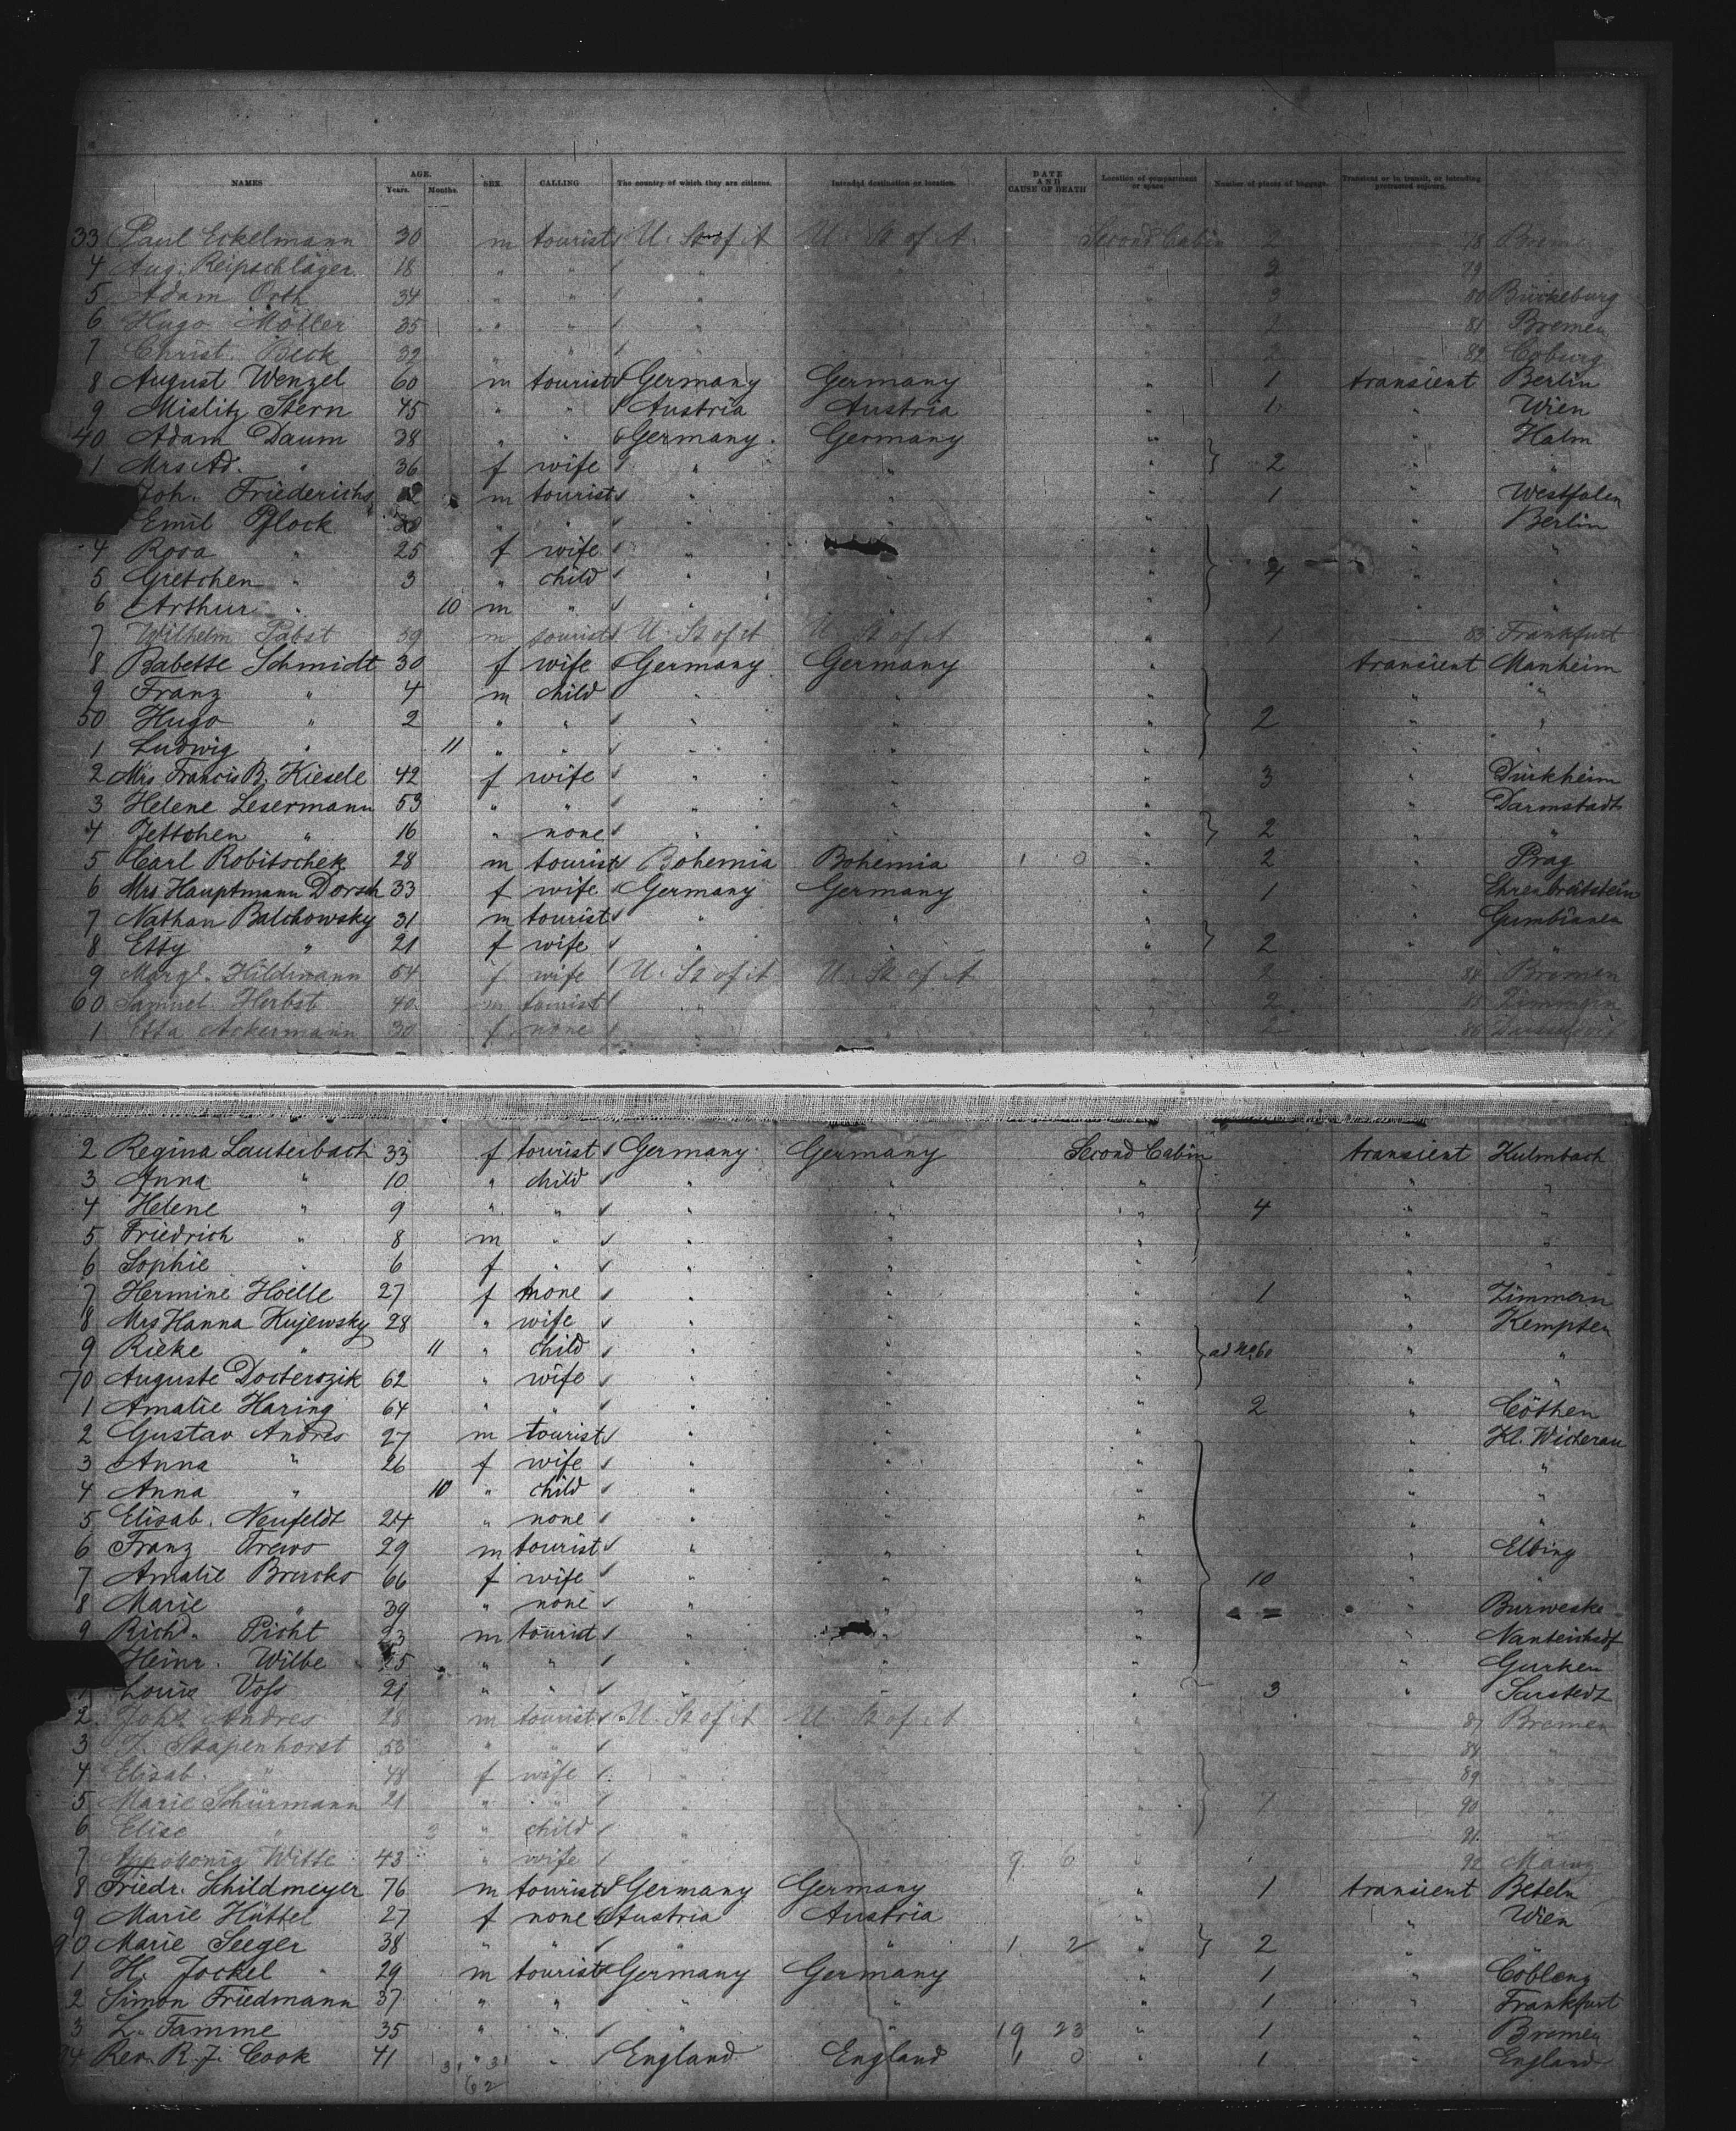 NAMES AGE. Years. Months. SEX. CALLING The country of which they are citizens. Intended destination or location. DATE AND CAUSE OF DEATH Location of compartment or space. Number of pieces of baggage. Transient or in transit, or intending protracted sojourn.
33 Paul Eckelmann 30 m tourist U. St of A U. St of A. Second Cabin 2 78
4 Aug. Reipschläger 18 " " " " 2 79
5 Adam Orth 34 " " " " 3 80 Bückeburg
6 Hugo Möller 35 " " " " 2 81 Bremen
7 Christ. Beck 32 " " " " 2 82 Coburg
8 August Wenzel 60 m tourist Germany Germany " 1 transient Berlin
9 Mislitz Stern 45 " " Austria Austria " 1 " Wien
40 Adam Daum 38 " " Germany Germany " " Halm
1 Mrs Ad. " 36 f wife " " " 2 " "
Joh. Friederichs m tourist " " " 1 " Westfalen
Emil Pflock " " " " " " Berlin
4 Rosa " 25 f wife " " " "
5 Gretchen " 3 " child " " " 4 " "
6 Arthur " 10 m " " " " " "
7 Wilhelm Pabst 39 m tourist U. St of A U. St of A " 1 83 Frankfurt
8 Babette Schmidt 30 f wife Germany Germany " transient Manheim
9 Franz " 4 m child " " " " "
50 Hugo " 2 " " " " " 2 " "
1 Ludwig " 11 " " " " " " "
2 Mrs Francis B. Kiesele 42 f wife " " " 3 " Dürkheim
3 Helene Lesermann 53 " " " " " " Darmstadt
4 Jettchen " 16 " none " " " 2 " "
5 Carl Robitschek 28 m tourist Bohemia Bohemia 1 0 " 2 " Prag
6 Mrs Hauptmann Dorsch 33 f wife Germany Germany " 1 " Ehrenbreitstein
7 Nathan Balchowsky 31 m tourist " " " " Gumbinnen
8 Etty " 21 f wife " " " 2 " "
9 Margt. Hildmann 54 f wife U. St of A U. St of A " 2 84 Bremen
60 Samuel Herbst 40 m tourist " " " 2 85 Zimmern
1 Etta Ackermann 30 f none " " " 2 86
2 Regina Lauterbach 33 f tourist Germany Germany Second Cabin transient Kulmbach
3 Anna " 10 " child " " " " "
4 Helene " 9 " " " " " 4 " "
5 Friedrich " 8 m " " " " " "
6 Sophie " 6 f " " " " " "
7 Hermine Hoelle 27 f none " " " 1 " Zimmern
8 Mrs Hanna Kujewsky 28 " wife " " " " Kempten
9 Rieke " 11 " child " " " ad No 60 " "
70 Auguste Docterozik 62 " wife " " " " "
1 Amalie Haring 64 " " " " " 2 " Cöthen
2 Gustav Andres 27 m tourist " " " " Kl. Wicherau
3 Anna " 26 f wife " " " " "
4 Anna " 10 " child " " " " "
5 Elisab. Neufeldt 24 " none " " " " "
6 Franz Trews 29 m tourist " " " " Elbing
7 Amalie Broscko 66 f wife " " " 10 " "
8 Marie " 39 " none " " " " Burweske
9 Richd. Picht 23 m tourist " " " "
Heinr. Wilbe 25 " " " " " " Gurken
1 Louis Voss 21 " " " " " 3 " Sarstedt
2 Joh. Andres 28 m tourist U. St of A U. St of A 87 Bremen
3 J. Stapenhorst 53 " " " 88 "
4 Elisab. " 48 f wife " 89 "
5 Marie Schürmann 21 " " " " 7 90 "
6 Elise " 3 " child " 91 "
7 Witte 43 " wife 9 6 " 1 92 Mainz
8 Friedr. Schildmeyer 76 m tourist Germany Germany " 1 transient Beteln
9 Marie Hüttel 27 f none Austria Austria " " Wien
90 Marie Seeger 38 " " " " 1 2 " 2 " "
1 H. Jockel 29 m tourist Germany Germany " 1 " Coblenz
2 Simon Friedmann 37 " " " " " 1 " Frankfurt
3 L. Tamme 35 " " " " 19 23 " 1 " Bremen
94 Rev. R. J. Cook 41 " " England England 1 0 " 1 " England
62